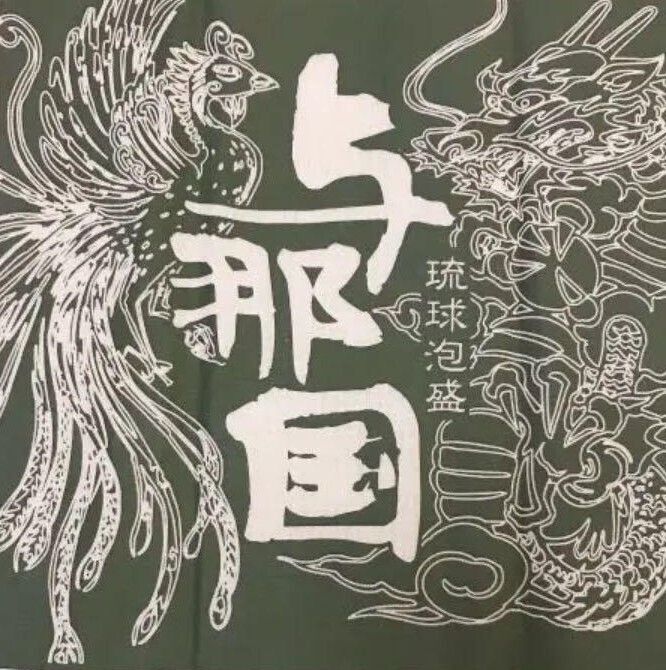 与那国
琉球泡盛